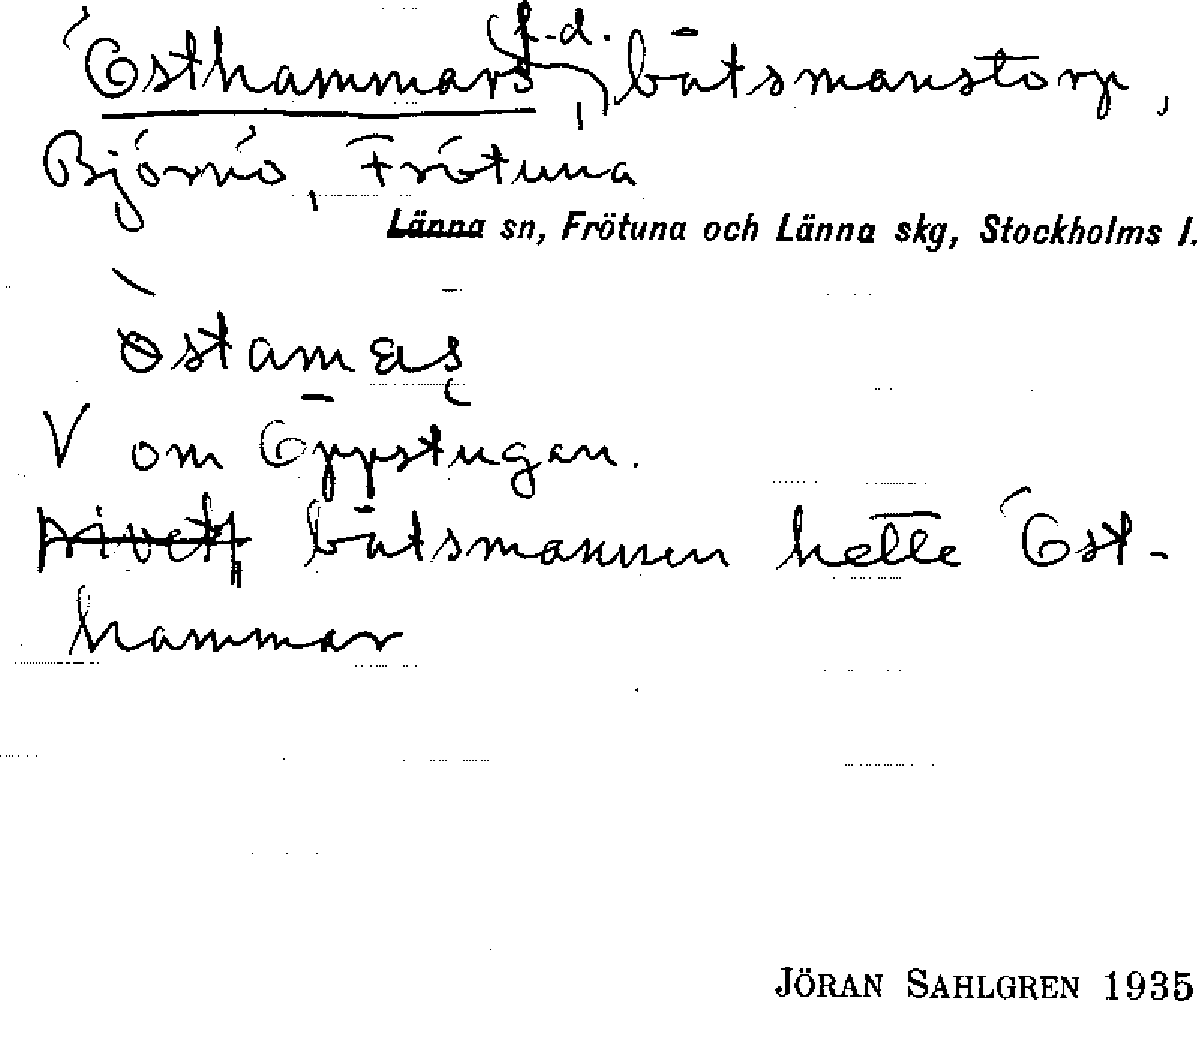 Östhammars, f.d. båtsmanstorp,
Björnö, Frötuna
Länna sn, Frötuna och Länna skg, Stockholms l.
östamas
V om Öppstugan.
båtsmannen hette Öst-
hammar
JÖRAN SAHLGREN 1935